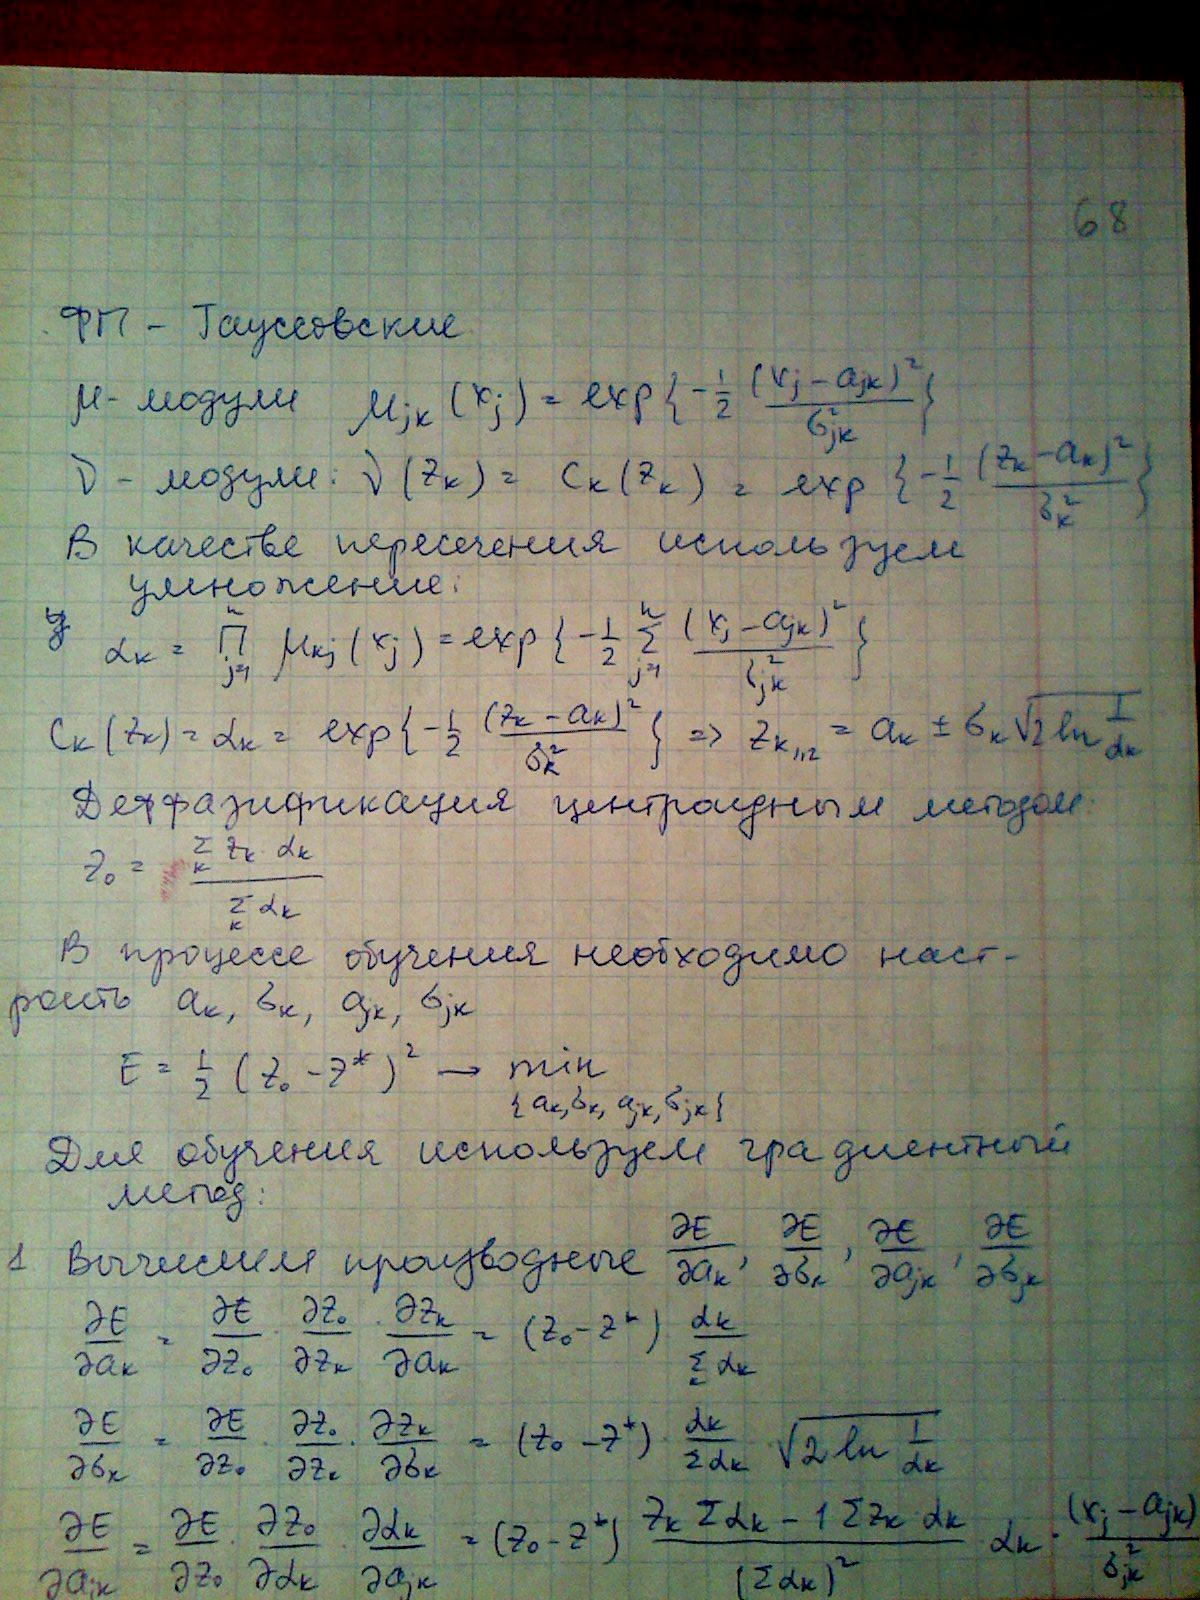 68
ФП - Гауссовские
μ - модули μ_jk (x_j) = exp{ -1/2 (x_j - a_jk)² / σ²_jk }
ν - модули: ν (z_k) = C_k (z_k) = exp { -1/2 (z_k - a_k)² / σ_k² }
В качестве пересечения используем
умножение:
α_k = ∏_{j=1}^{n} μ_kj (x_j) = exp { -1/2 ∑_{j=1}^{n} (x_j - a_jk)² / σ_jk² }
C_k (z_k) = α_k = exp{ -1/2 (z_k - a_k)² / σ_k² } => z_k1,2 = a_k ± σ_k √(2 ln 1/α_k)
Деффазификация центроидным методом:
z_0 = ∑_k z_k α_k / ∑_k α_k
В процессе обучения необходимо наст-
роить a_k, σ_k, a_jk, σ_jk
E = 1/2 (z_0 - z*)² → min {a_k, σ_k, a_jk, σ_jk}
Для обучения используем градиентный
метод:
1 Вычислим производные ∂E/∂a_k, ∂E/∂σ_k, ∂E/∂a_jk, ∂E/∂σ_jk
∂E/∂a_k = ∂E/∂z_0 · ∂z_0/∂z_k · ∂z_k/∂a_k = (z_0 - z*) α_k / ∑_k α_k
∂E/∂σ_k = ∂E/∂z_0 · ∂z_0/∂z_k · ∂z_k/∂σ_k = (z_0 - z*) · α_k / ∑ α_k · √(2 ln 1/α_k)
∂E/∂a_jk = ∂E/∂z_0 · ∂z_0/∂α_k · ∂α_k/∂a_jk = (z_0 - z*) (z_k ∑ α_k - 1 ∑ z_k α_k) / (∑ α_k)² · α_k · (x_j - a_jk) / σ_jk²